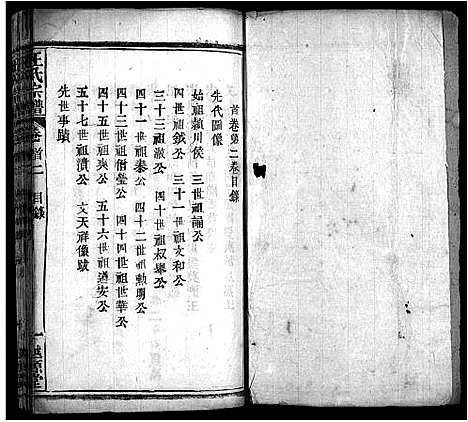 首卷第二卷目錄
先代圖像
始祖潁川侯 三世祖誦公
四世祖鉞公 三十一世祖文和公
三十三祖澈公 四十世祖叔舉公
四十一世祖秦公 四十二世祖勲明公
四十三世祖僧瑩公 四十四世祖世華公
四十五世祖爽公 五十六世祖道安公
五十七世祖漬公 文天祥像賦
先世事蹟
氏宗譜 卷首二 目錄 一